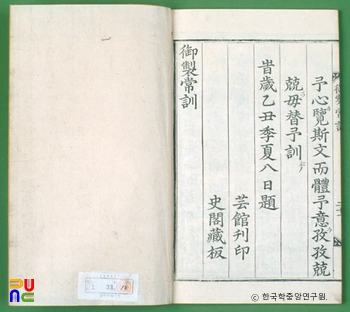 予心覽斯文而體予意孜孜兢
兢毋替予訓
旹歲乙丑季夏八日題
芸館刊印
史閣藏板
御製常訓
PUNC
ⓒ 한국학중앙연구원